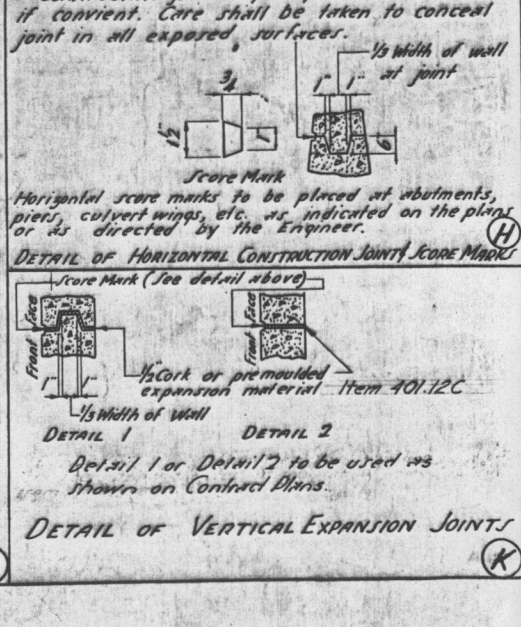 if convient. Care shall be taken to conceal
joint in all exposed surfaces.
1/3 Width of wall
at joint
3/4
1" 1"
1 1/2"
1"
6"
Score Mark
Horizontal score marks to be placed at abutments,
piers, culvert wings, etc. as indicated on the plans
or as directed by the Engineer.
H
DETAIL OF HORIZONTAL CONSTRUCTION JOINT & SCORE MARKS
Score Mark (See detail above)
Front Face
Front Face
1/2" Cork or premoulded
expansion material
Item 401.12C
1" 1"
1/3 Width of Wall
DETAIL 1
DETAIL 2
Detail 1 or Detail 2 to be used as
shown on Contract Plans.
DETAIL OF VERTICAL EXPANSION JOINTS
K